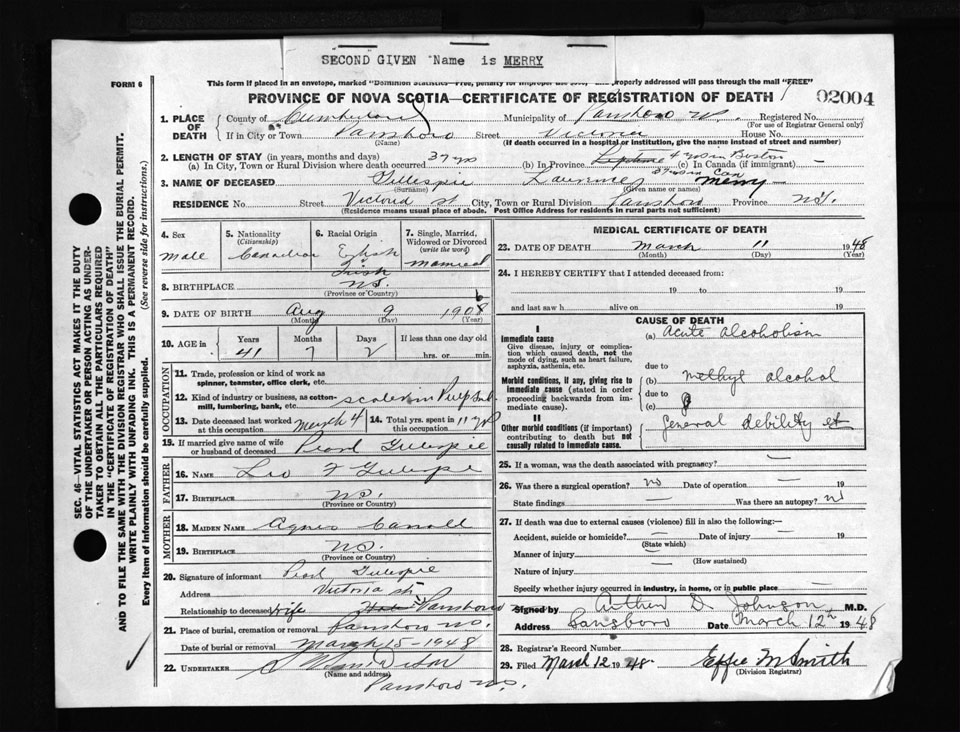 SECOND GIVEN Name is MERRY
FORM 6
This form if placed in an envelope, marked "Dominion Statistics—Free, penalty for improper use, properly addressed will pass through the mail "FREE"
PROVINCE OF NOVA SCOTIA—CERTIFICATE OF REGISTRATION OF DEATH
02004
1. PLACE OF DEATH
County of Cumberland Municipality of Parrsboro N.S. Registered No.
(For use of Registrar General only)
If in City or Town Parrsboro Street Victoria House No.
(Name) (If death occurred in a hospital or institution, give the name instead of street and number)
2. LENGTH OF STAY (in years, months and days)
(a) In City, Town or Rural Division where death occurred 37 yrs (b) In Province Lifetime 4 yrs in Boston (c) In Canada (if immigrant) —
37 yrs in Can
3. NAME OF DECEASED Gillespie Laurence Merry
(Surname) (Given name or names)
RESIDENCE No. Street Victoria St City, Town or Rural Division Parrsboro Province N.S.
(Residence means usual place of abode. Post Office Address for residents in rural parts not sufficient)
4. Sex Male
5. Nationality (Citizenship) Canadian
6. Racial Origin English Irish
7. Single, Married, Widowed or Divorced (write the word) married
8. BIRTHPLACE N.S.
(Province or Country)
9. DATE OF BIRTH Aug 9 1906
(Month) (Day) (Year)
10. AGE in Years 41 Months 7 Days 2 If less than one day old hrs. or min.
OCCUPATION
11. Trade, profession or kind of work as spinner, teamster, office clerk, etc.
12. Kind of industry or business, as cotton-mill, lumbering, bank, etc. scaler in Pulp
13. Date deceased last worked at this occupation March 4
14. Total yrs. spent in this occupation 11 yr
19. If married give name of wife or husband of deceased Pearl Gillespie
FATHER
16. NAME Leo F Gillespie
17. BIRTHPLACE N.S.
(Province or Country)
MOTHER
18. MAIDEN NAME Agnes Carroll
19. BIRTHPLACE N.S.
(Province or Country)
20. Signature of informant Pearl Gillespie
Address Victoria St
Relationship to deceased wife Parrsboro
21. Place of burial, cremation or removal Parrsboro N.S.
Date of burial or removal March 15 - 1948
22. UNDERTAKER
(Name and address)
Parrsboro N.S.
MEDICAL CERTIFICATE OF DEATH
23. DATE OF DEATH March 11 1948
(Month) (Day) (Year)
24. I HEREBY CERTIFY that I attended deceased from:
19 to 19
and last saw h alive on 19
CAUSE OF DEATH
I
Immediate cause
Give disease, injury or complication which caused death, not the mode of dying, such as heart failure, asphyxia, asthenia, etc.
(a) Acute alcoholism
due to
Morbid conditions, if any, giving rise to immediate cause (stated in order proceeding backwards from immediate cause).
(b) methyl alcohol
due to
(c)
II
Other morbid conditions (if important) contributing to death but not causally related to immediate cause.
general debility
25. If a woman, was the death associated with pregnancy? —
26. Was there a surgical operation? no Date of operation — 19
State findings — Was there an autopsy? no
27. If death was due to external causes (violence) fill in also the following:—
Accident, suicide or homicide? — Date of injury — 19
(State which)
Manner of injury —
(How sustained)
Nature of injury —
Specify whether injury occurred in industry, in home, or in public place —
Signed by Arthur D. Johnson M.D.
Address Parrsboro Date March 12th 1948
28. Registrar's Record Number
29. Filed March 12 1948 Effie M Smith
(Division Registrar)
SEC. 46—VITAL STATISTICS ACT MAKES IT THE DUTY
OF THE UNDERTAKER OR PERSON ACTING AS UNDER-
TAKER TO OBTAIN ALL THE PARTICULARS REQUIRED
IN THE "CERTIFICATE OF REGISTRATION OF DEATH"
AND TO FILE THE SAME WITH THE DIVISION REGISTRAR WHO SHALL ISSUE THE BURIAL PERMIT.
WRITE PLAINLY WITH UNFADING INK. THIS IS A PERMANENT RECORD.
Every item of Information should be carefully supplied. (See reverse side for instructions.)